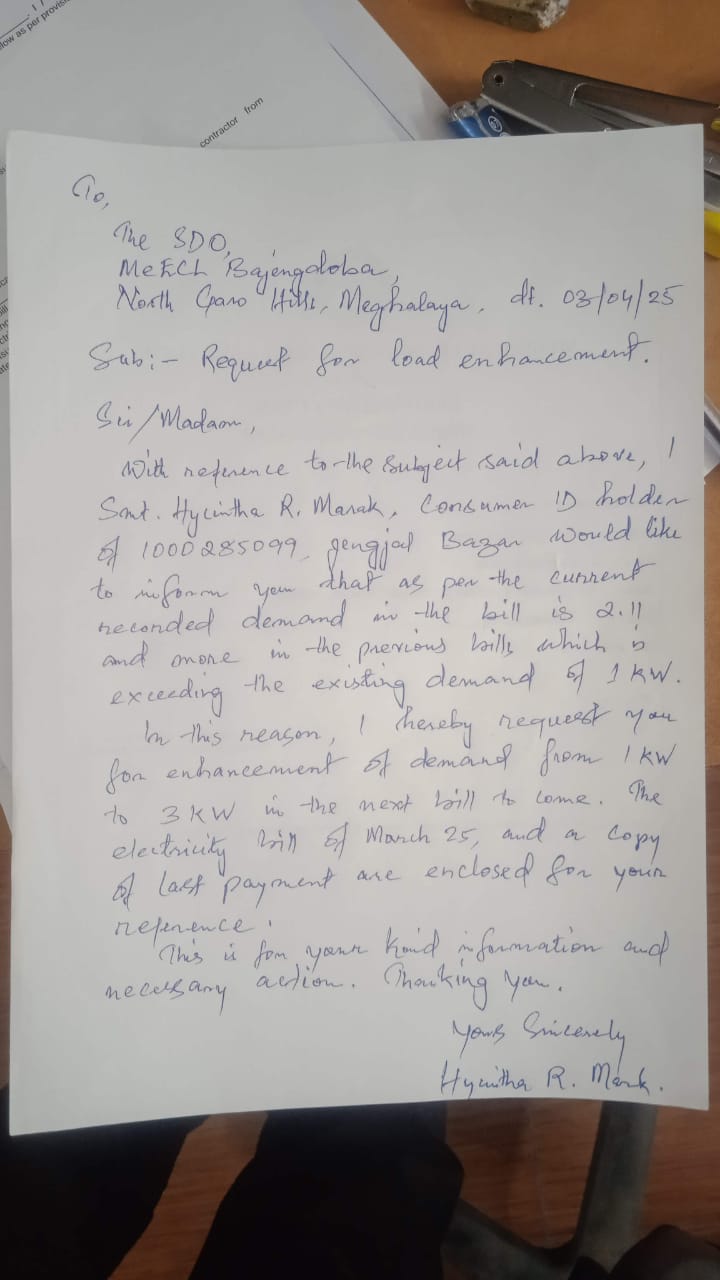 low as per provis
contractor from
To,
The SDO,
MeECL Bajengdoba,
North Garo Hills, Meghalaya. dt. 03/04/25
Sub:- Request for load enhancement.
Sir/Madam,
With reference to the subject said above, I
Smt. Hycintha R. Marak, Consumer ID holder
of 1000285099, Jengjal Bazar would like
to inform you that as per the current
recorded demand in the bill is 2.11
and more in the previous bills which is
exceeding the existing demand of 1 KW.
In this reason, I hereby request you
for enhancement of demand from 1 KW
to 3 KW in the next bill to come. The
electricity bill of March 25, and a copy
of last payment are enclosed for your
reference.
This is for your kind information and
necessary action. Thanking you.
Yours Sincerely
Hycintha R. Marak.